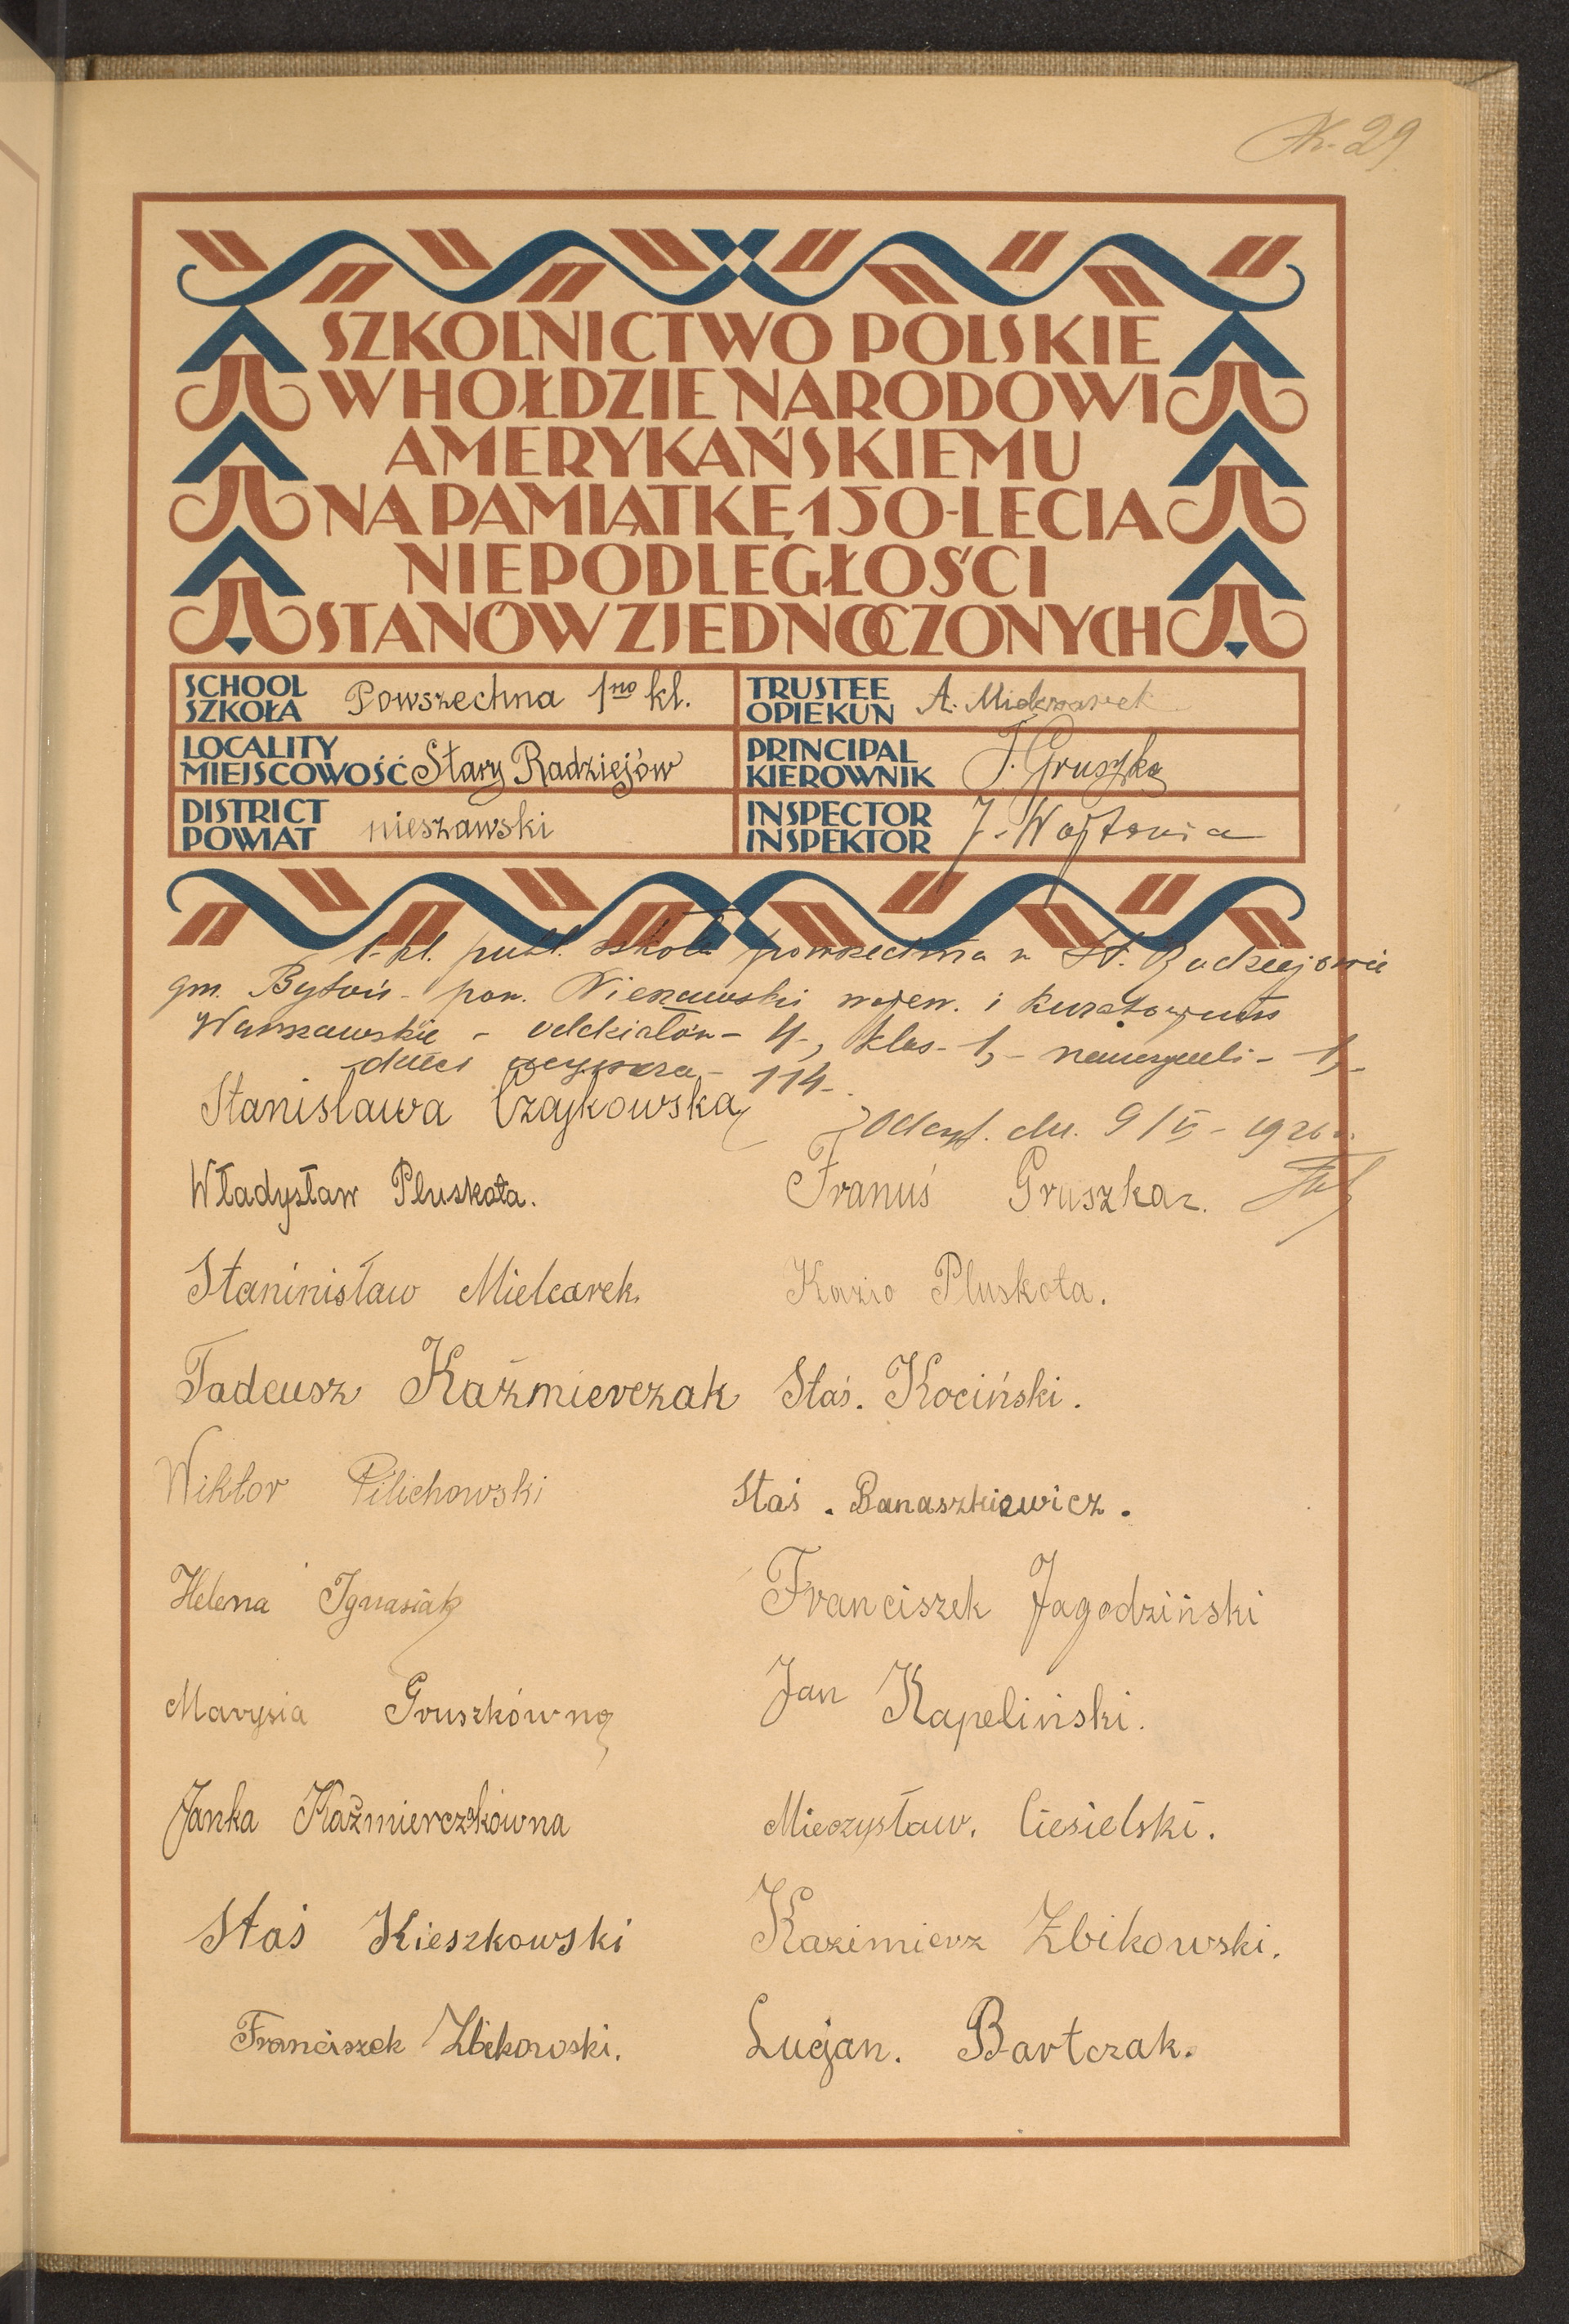 Nr. 29
SZKOLNICTWO POLSKIE
W HOŁDZIE NARODOWI
AMERYKAŃSKIEMU
NA PAMIĄTKĘ 150-LECIA
NIEPODLEGŁOŚCI
STANÓW ZJEDNOCZONYCH
SCHOOL
SZKOŁA
Powszechna 1no kl.
TRUSTEE
OPIEKUN
A.
LOCALITY
MIEJSCOWOŚĆ
Stary Radziejów
PRINCIPAL
KIEROWNIK
J. Gruszka
DISTRICT
POWIAT
nieszawski
INSPECTOR
INSPEKTOR
J. Wojtania
1-kl. publ. szkoła powszechna w St. Radziejowie
gm. Bytoń - pow. Nieszawski wojew. i kuratorjum
Warszawskie - oddziałów - 4, klas - 1, - nauczycieli - 1, -
dzieci 114 -
Stanisława Czajkowska
dn. 9/VI - 1926 r.
Władysław Pluskota.
Franuś Gruszka.
Staninisław Mielcarek.
Kazio Pluskota.
Tadeusz Kaźmierczak
Staś. Kociński.
Wiktor Pilichowski
Staś. Banaszkiewicz.
Helena Ignasiak
Franciszek Jagodziński
Marysia Gruszkówna
Jan Kapeliński.
Janka Kaźmierczakówna
Mieczysław. Ciesielski.
Staś Kieszkowski
Kazimierz Zbikowski.
Franciszek Zbikowski.
Lucjan. Bartczak.